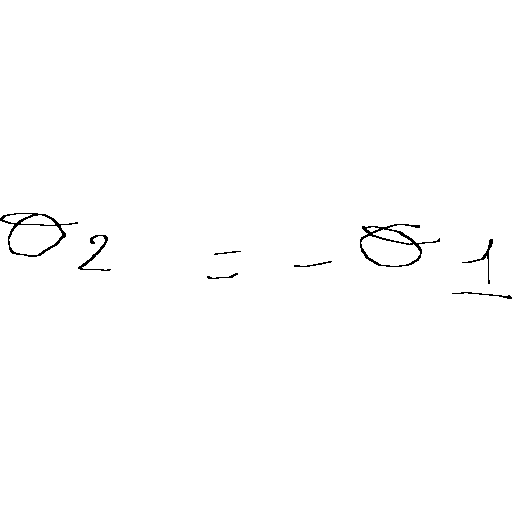 σ₂ = - σ₁